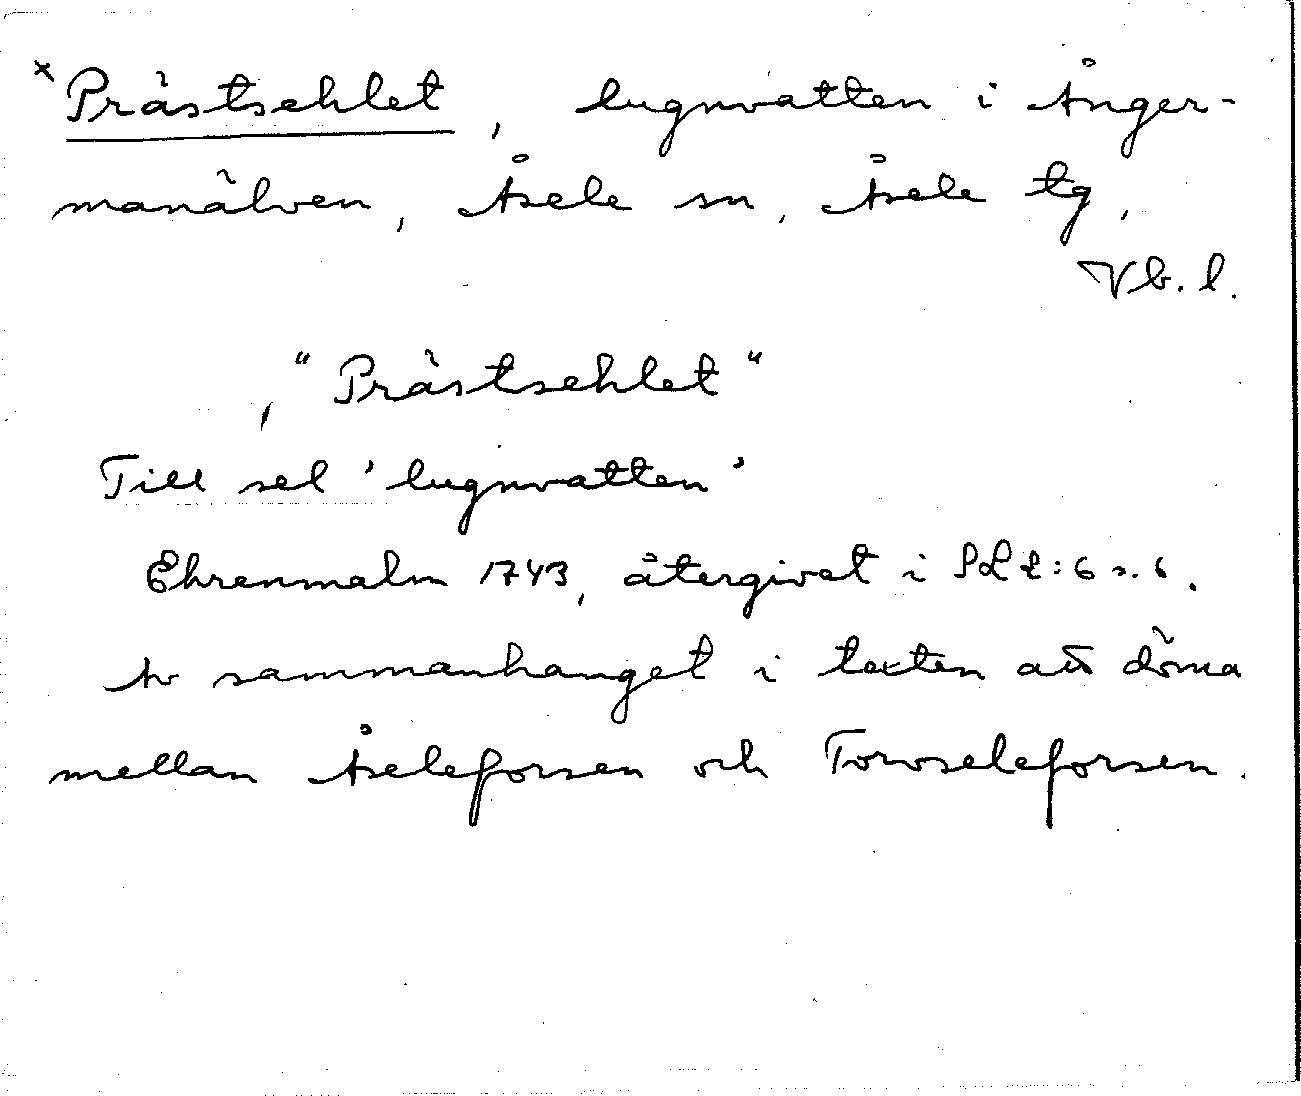 × Prästsehlet, lugnvatten i Ånger-
manälven, Åsele sn, Åsele tg,
Vb. l.
, "Prästsehlet"
Till sel 'lugnvatten'
Ehrenmalm 1743, återgivet i SLL:6 s. 6.
Av sammanhanget i texten att döma
mellan Åseleforsen och Torvseleforsen.